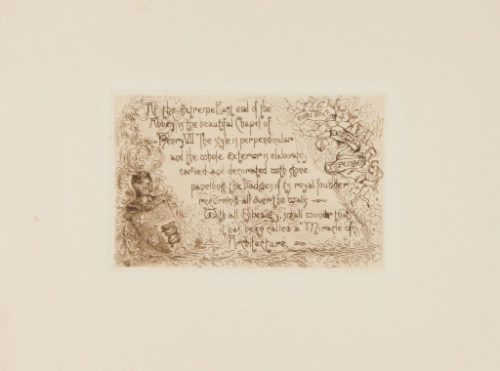 At the extreme East end of the
Abbey is the beautiful Chapel of
Henry VII The style is perpendicular
and the whole exterior is elaborately
carved and decorated with stone
panelling the badges of its royal founder
recurring all over the walls
With all its beauty, small wonder that
it has been called a "Miracle of
Architecture.